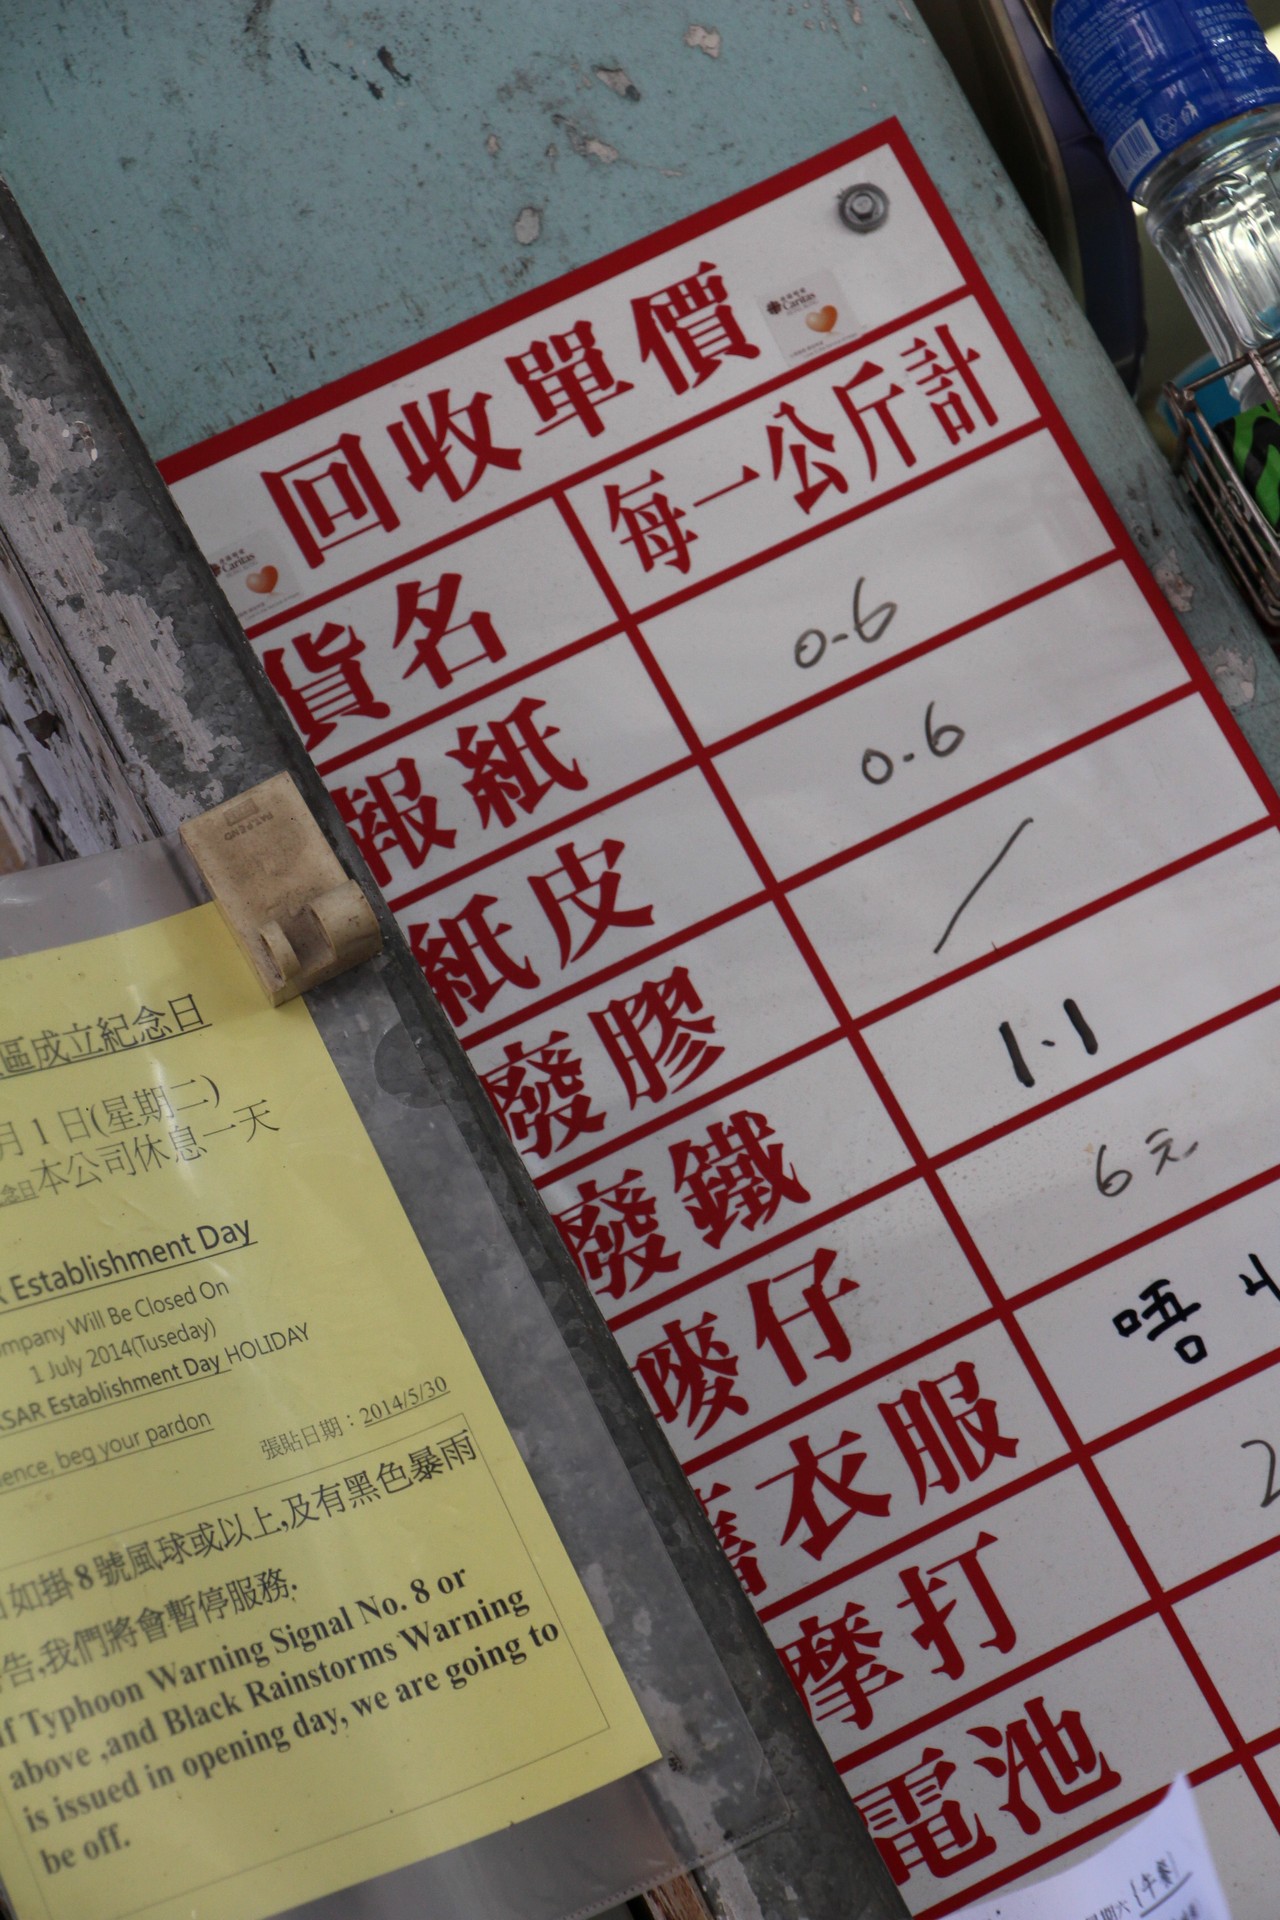 回收單價
Caritas
每一公斤計
Caritas
貨名
報紙 0.6
紙皮 0.6
廢膠 /
廢鐵 1.1
嘜仔 6元
舊衣服 唔
摩打 2
電池
PAT.PEND
區成立紀念日
月1日(星期二)
念日本公司休息一天
R Establishment Day
ompany Will Be Closed On
1 July 2014(Tuseday)
KSAR Establishment Day HOLIDAY
ience, beg your pardon
張貼日期：2014/5/30
如掛8號風球或以上,及有黑色暴雨
告,我們將會暫停服務.
If Typhoon Warning Signal No. 8 or
above ,and Black Rainstorms Warning
is issued in opening day, we are going to
be off.
期六 午餐